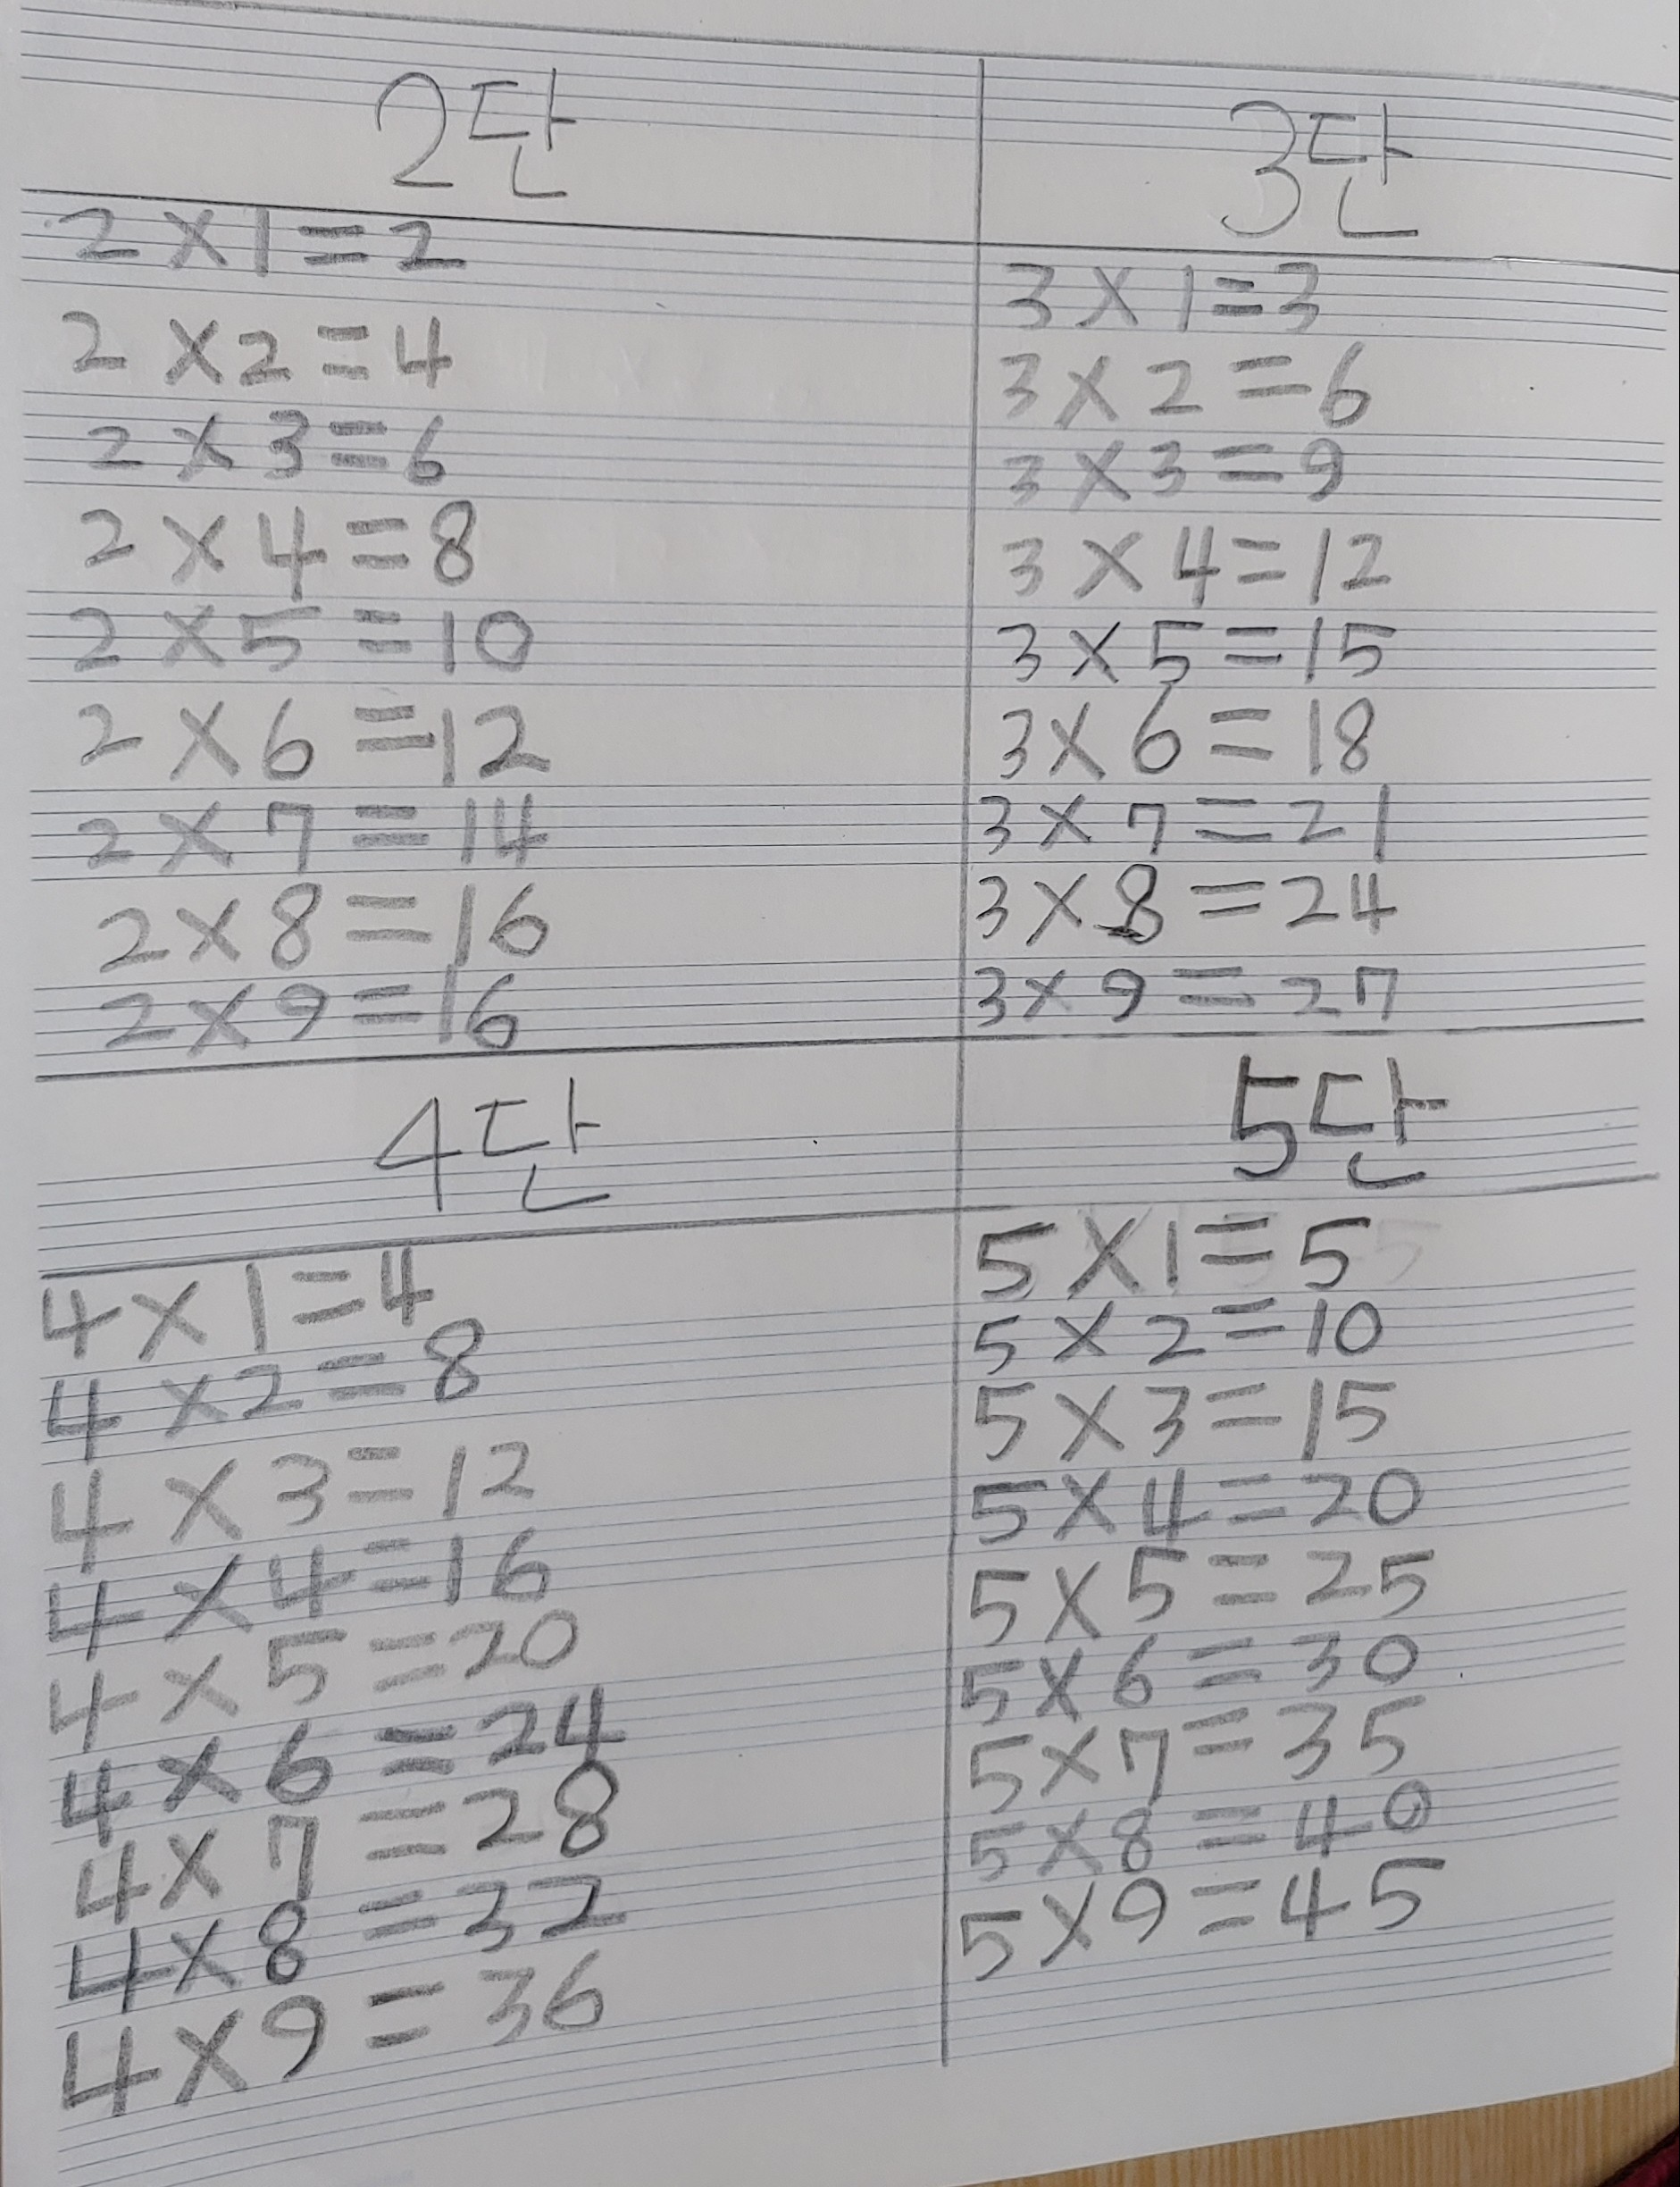 2단
2×1=2
2×2=4
2×3=6
2×4=8
2×5=10
2×6=12
2×7=14
2×8=16
2×9=16
3단
3×1=3
3×2=6
3×3=9
3×4=12
3×5=15
3×6=18
3×7=21
3×8=24
3×9=27
4단
4×1=4
4×2=8
4×3=12
4×4=16
4×5=20
4×6=24
4×7=28
4×8=32
4×9=36
5단
5×1=5
5×2=10
5×3=15
5×4=20
5×5=25
5×6=30
5×7=35
5×8=40
5×9=45